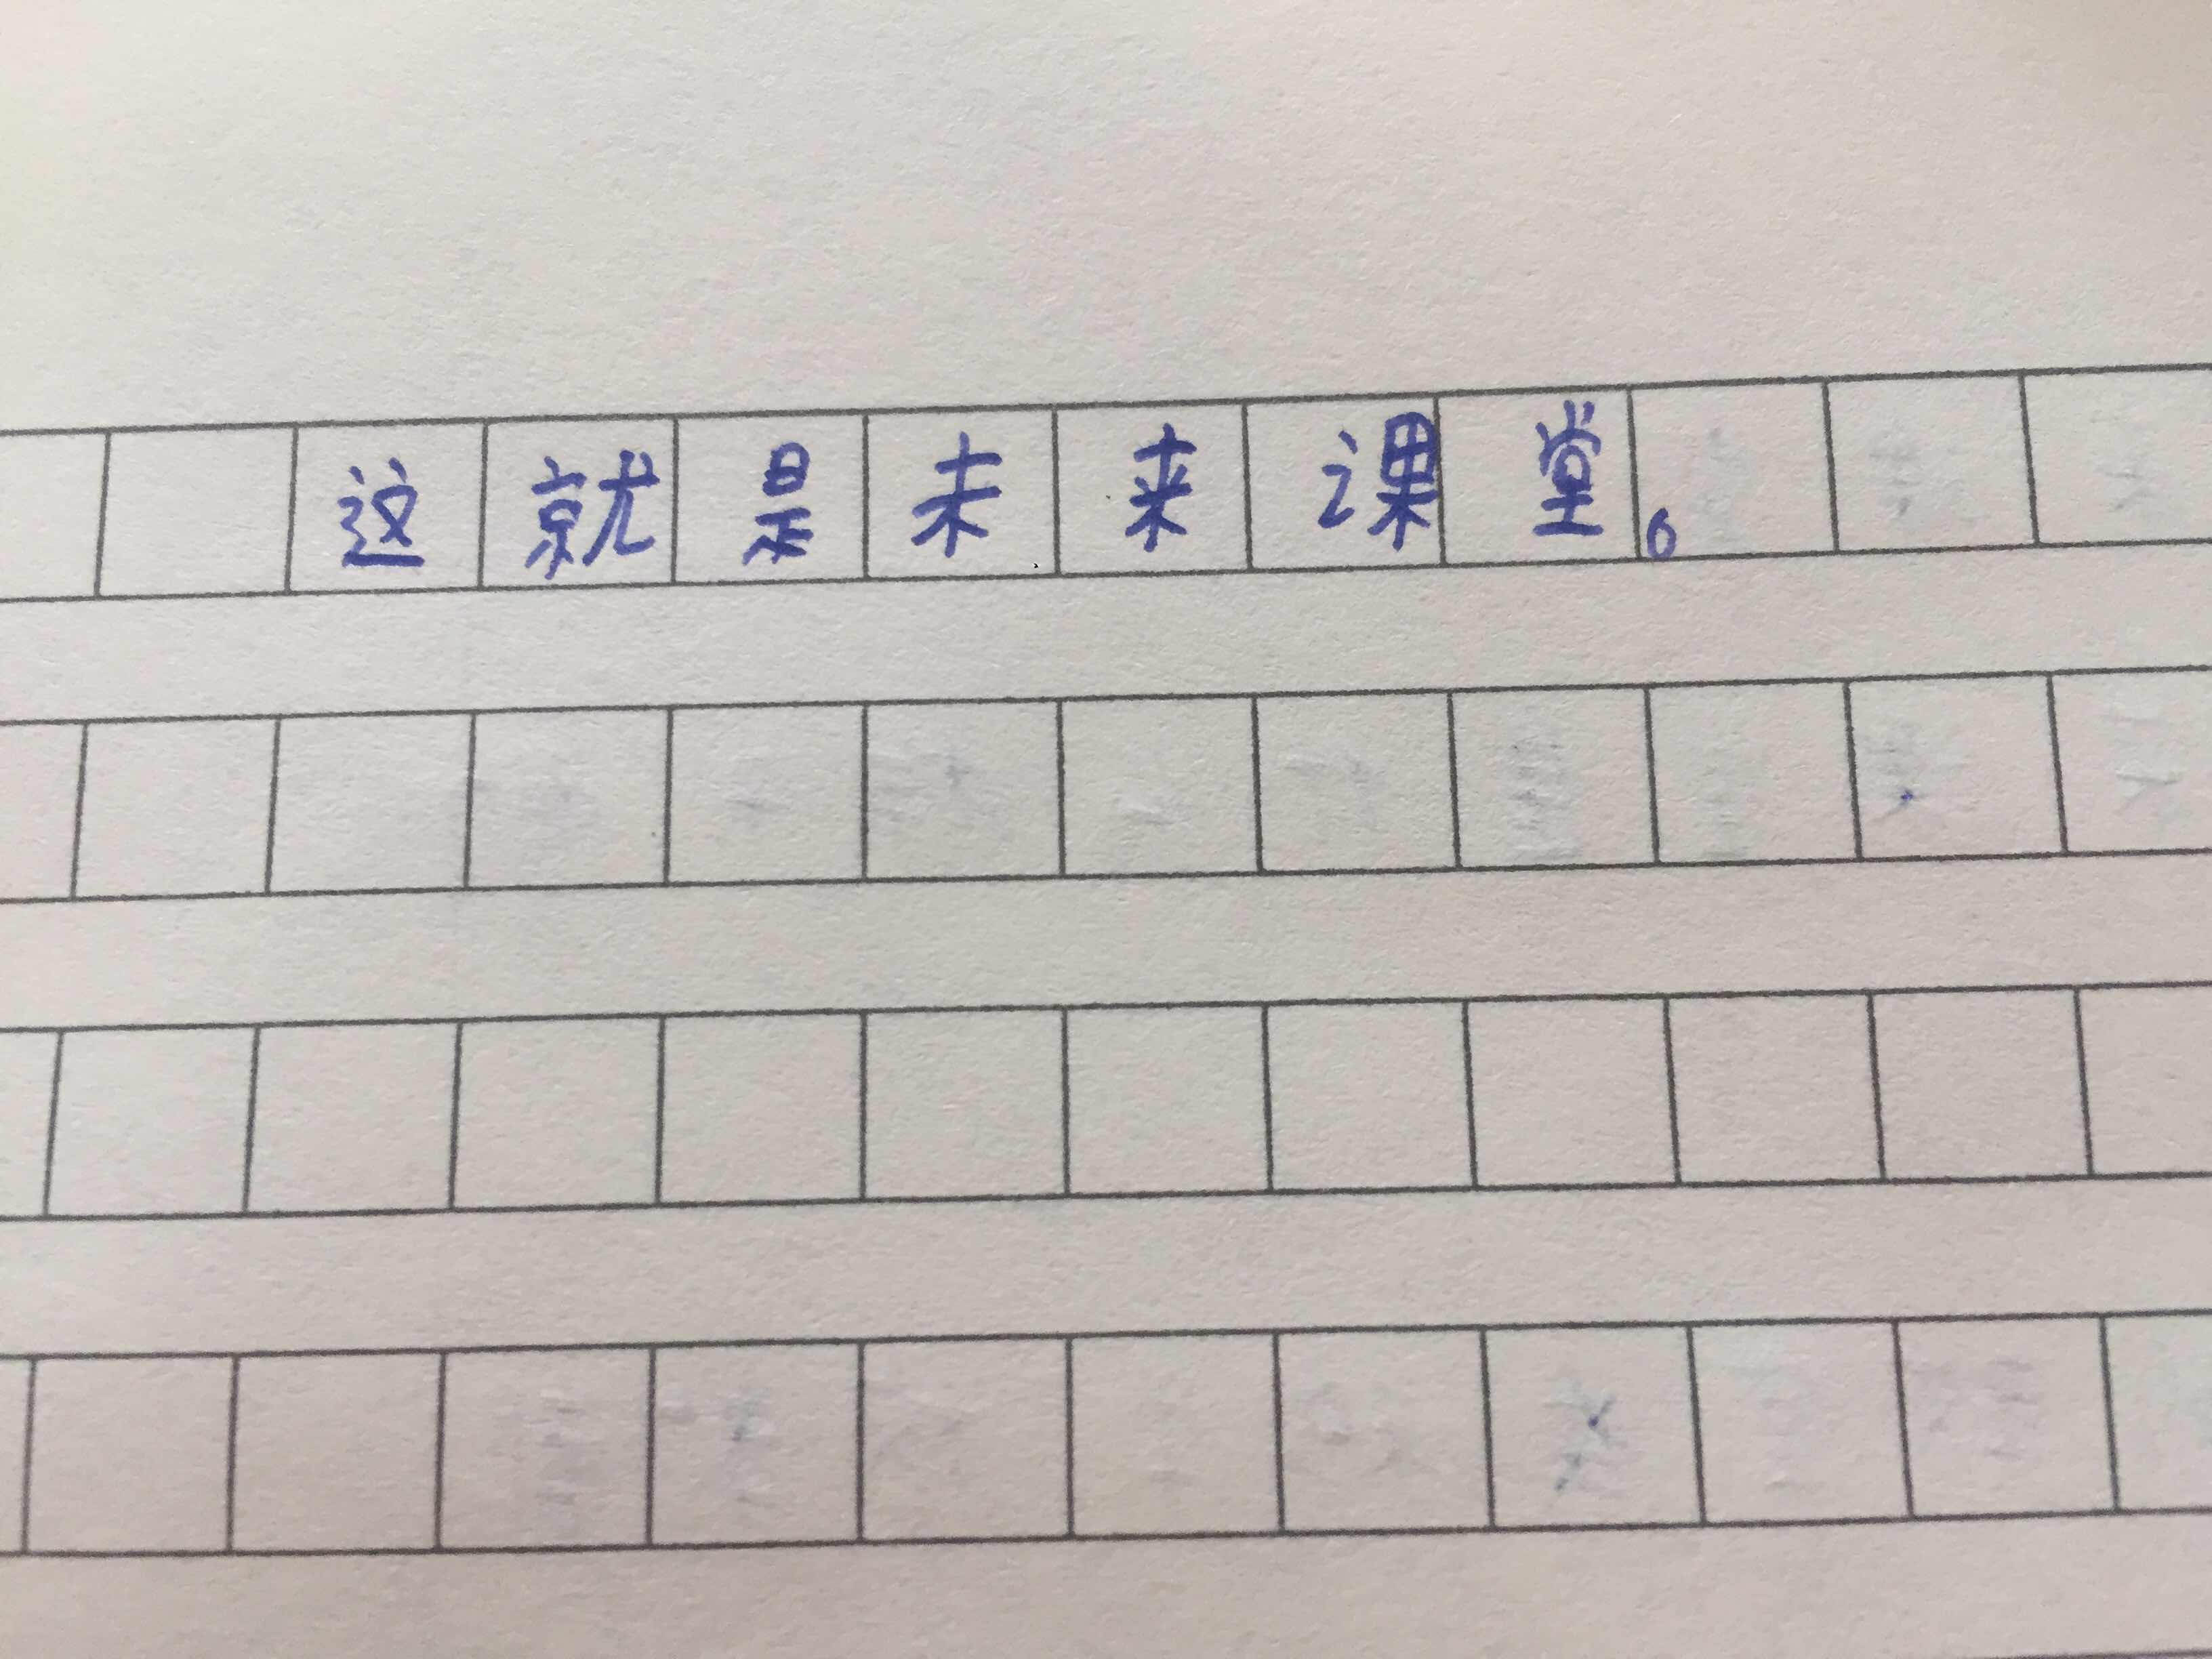 这就是未来课堂。